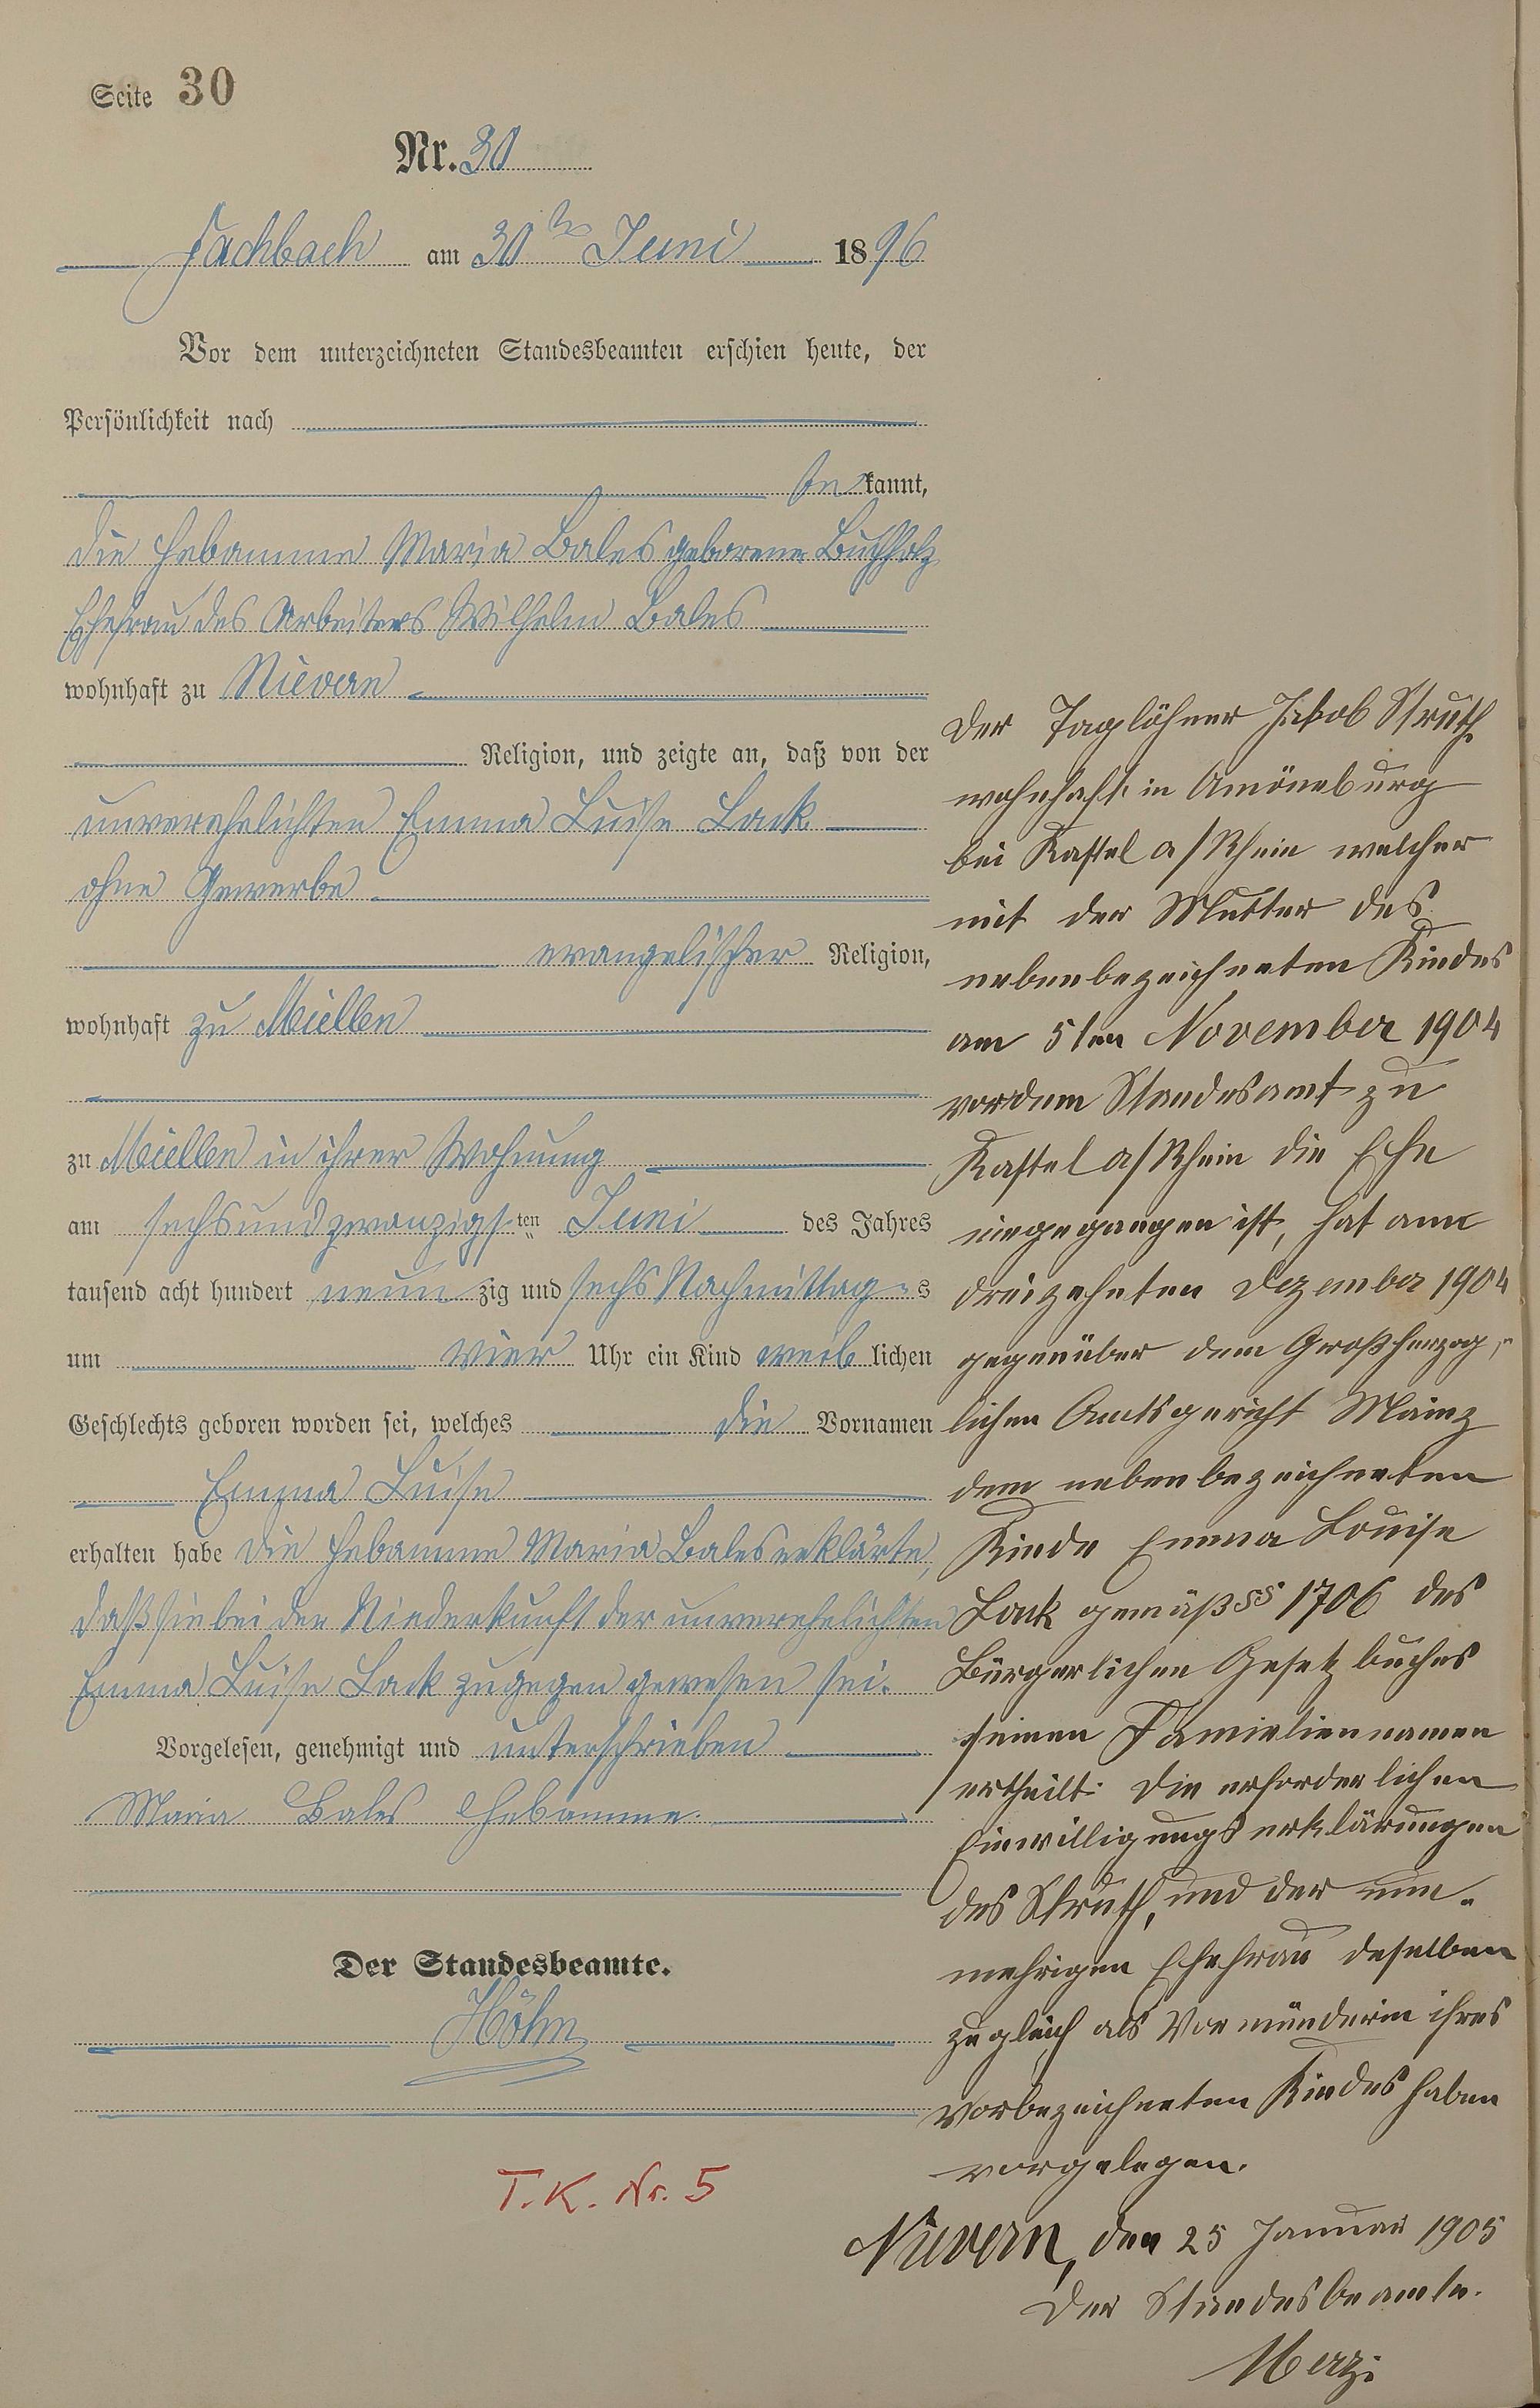 Seite 30
Nr. 30
Fachbach am 30ten Juni 1896
Vor dem unterzeichneten Standesbeamten erschien heute, der
Persönlichkeit nach
bekannt,
die Hebamme Maria Bales geborene Buchholz
Ehefrau des Arbeiters Wilhelm Bales
wohnhaft zu Nievern
Religion, und zeigte an, daß von der
unverehelichten Emma Luise Lack
ohne Gewerbe
evangelischer Religion,
wohnhaft zu Miellen
zu Miellen in ihrer Wohnung
am sechsundzwanzigsten Juni des Jahres
tausend acht hundert neunzig und sechs Nachmittags
um vier Uhr ein Kind weiblichen
Geschlechts geboren worden sei, welches die Vornamen
Emma Luise
erhalten habe die Hebamme Maria Bales erklärte,
daß sie bei der Niederkunft der unverehelichten
Emma Luise Lack zugegen gewesen sei.
Vorgelesen, genehmigt und unterschrieben
Maria Bales Hebamme.
Der Standesbeamte.
Höhn
T. K. Nr. 5
Der Taglöhner Jakob Struth
wohnhaft in Amöneburg
bei Kastel a/Rhein welcher
mit der Mutter des
nebenbezeichneten Kindes
am 5ten November 1904
vor dem Standesamt zu
Kastel a/Rhein die Ehe
eingegangen ist, hat am
dreizehnten Dezember 1904
gegenüber dem Großherzog-
lichen Amtsgericht Mainz
dem nebenbezeichneten
Kinde Emma Louise
Lack gemäß §§ 1706 des
Bürgerlichen Gesetzbuches
seinen Familiennamen
ertheilt. Die erforderlichen
Einwilligungserklärungen
des Struth, und der nun-
mehrigen Ehefrau deselben
zugleich als Vormünderin ihres
vorbezeichneten Kindes haben
vorgelegen.
Nievern, den 25 Januar 1905
Der Standesbeamte.
Merz.